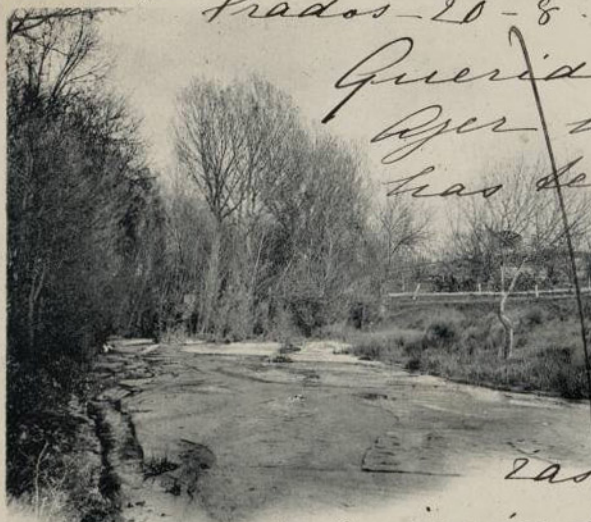 Prados - 20 - 8.
Querid
Ayer
has
ras